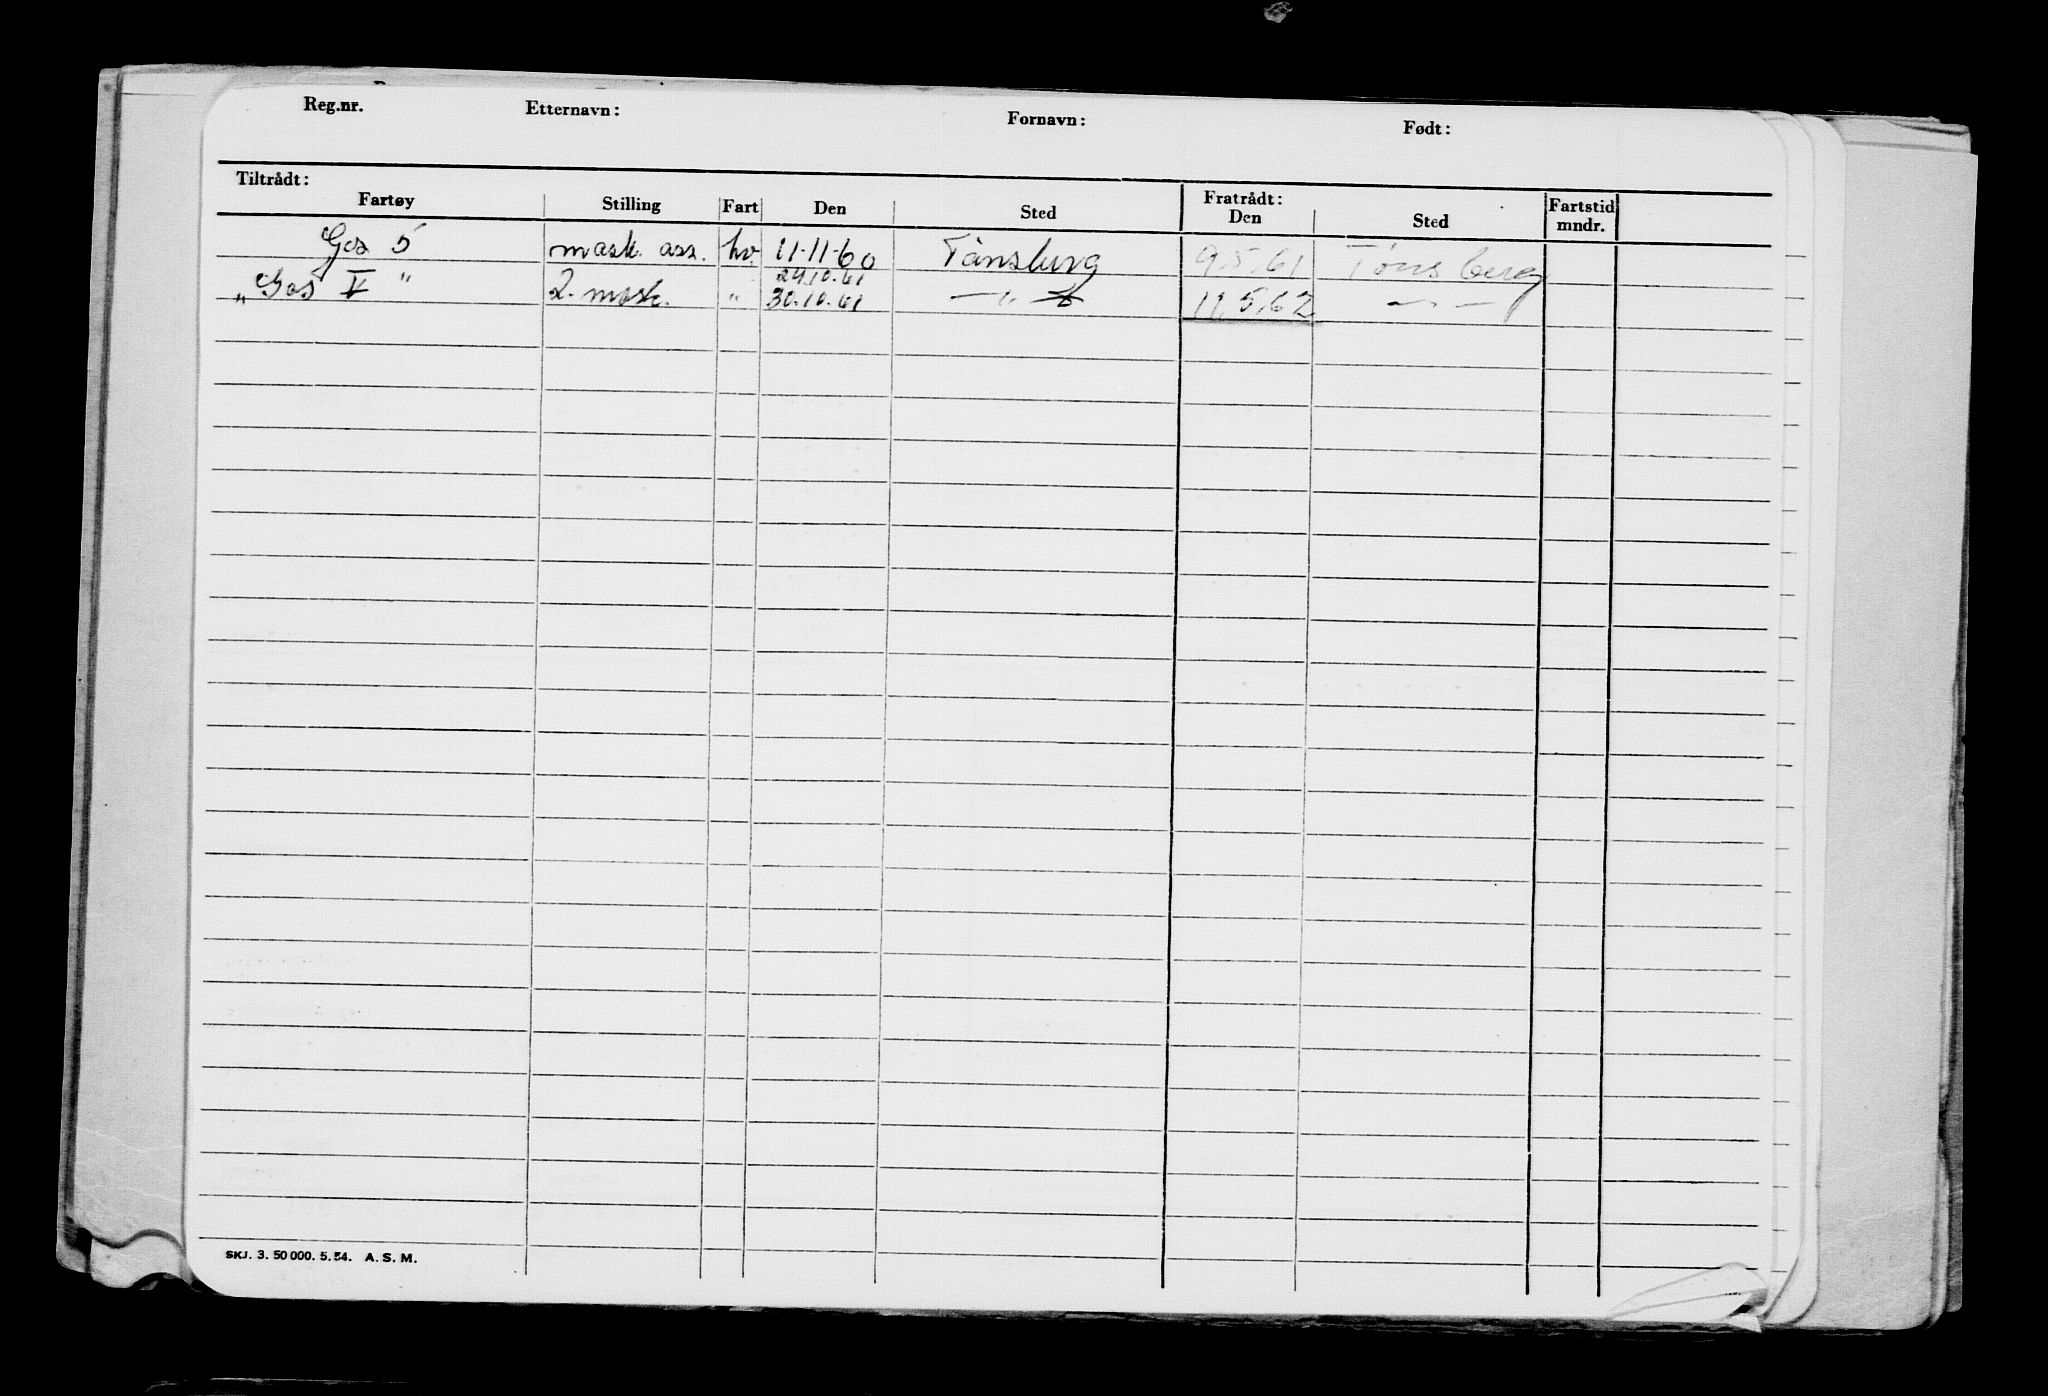 Reg.nr. Etternavn: Fornavn: Født:
Tiltrådt: Fratrådt:
Fartøy Stilling Fart Den Sted Den Sted Fartstid mndr.
Gos 5 mask. ass. hv. 11-11-60 Tønsberg 9.5.61 Tønsberg
29.10.61
"Gos V" 2. mask. " 30.10.61 — " — 11.5.62 — " —
SKJ. 3. 50 000. 5. 54. A. S. M.